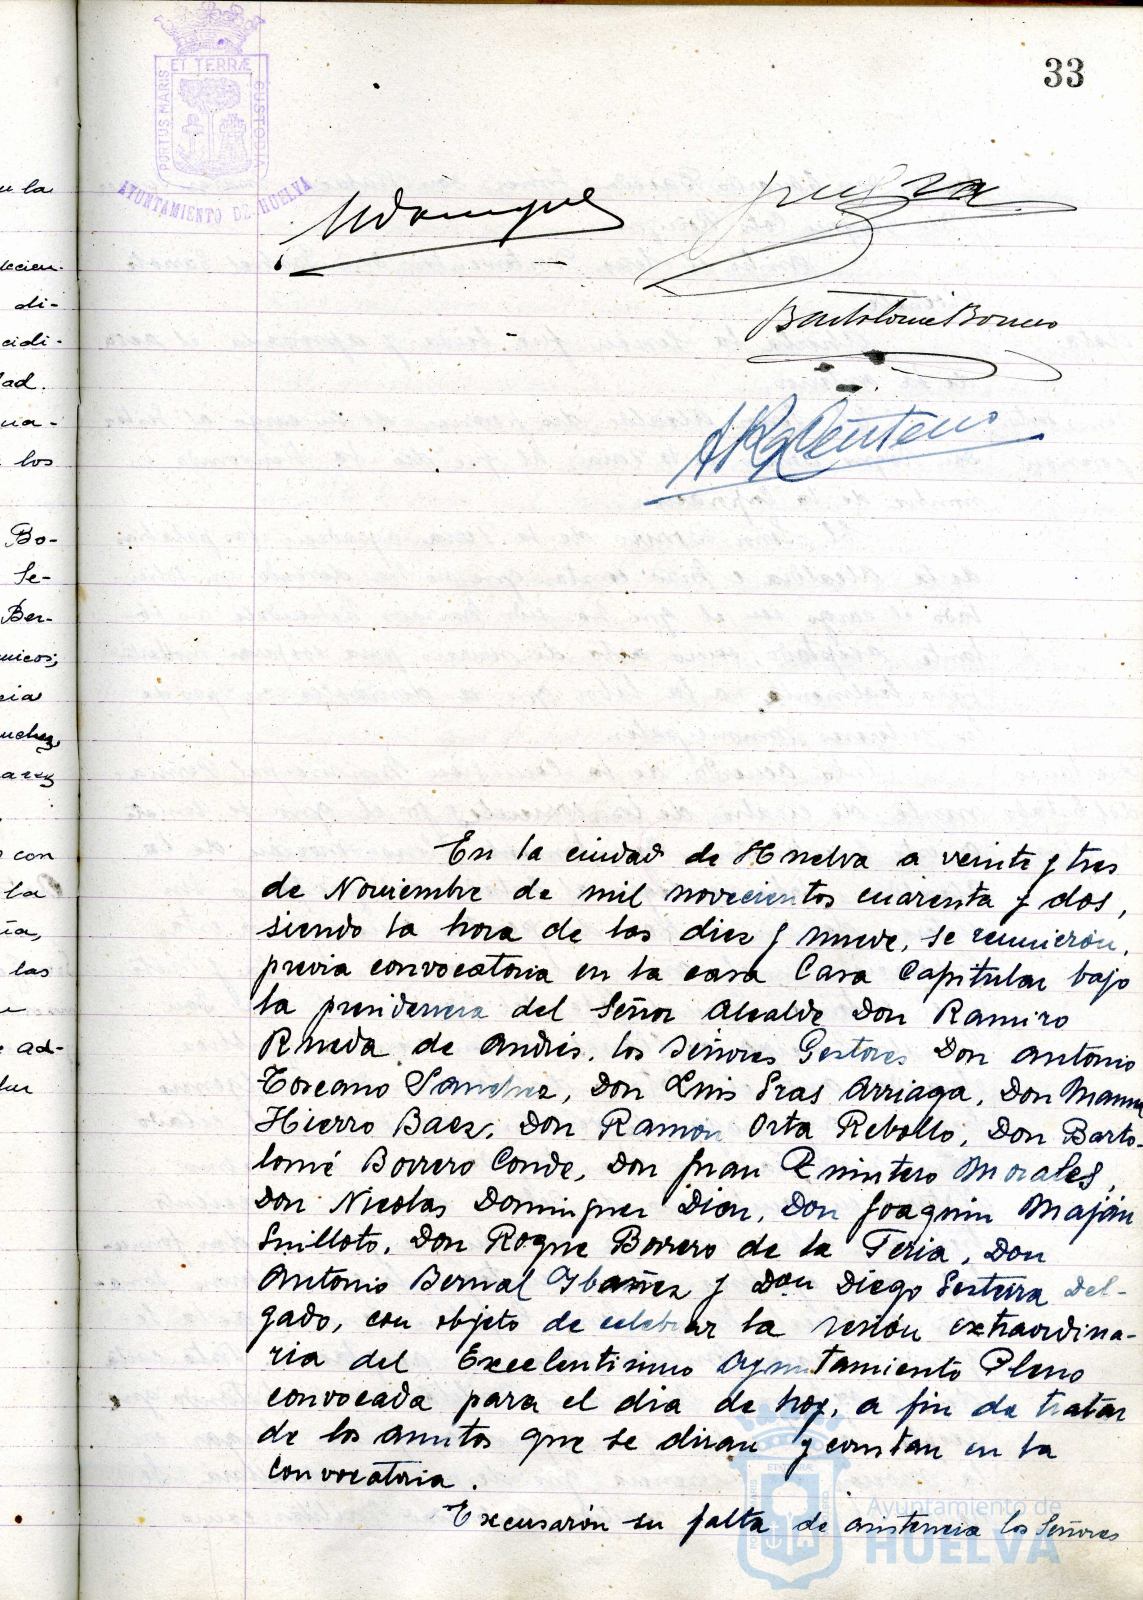 33
PORTUS MARIS ET TERRÆ CUSTODIA
AYUNTAMIENTO DE HUELVA
Bartolomé Borrero
En la ciudad de Huelva a veinte y tres
de Noviembre de mil novecientos cuarenta y dos,
siendo la hora de las diez y nueve, se reunieron,
previa convocatoria en la casa Casa Capitular bajo
la presidencia del Señor Alcalde Don Ramiro
Rueda de Andrés, los Señores Gestores Don Antonio
Toscano Sanchez, Don Luis Gras Arriaga, Don Manuel
Hierro Baez, Don Ramon Orta Rebollo, Don Barto-
lomé Borrero Conde, Don Juan Quintero Morales,
Don Nicolas Dominguez Diaz, Don Joaquin Maján
Guilloto, Don Roque Borrero de la Feria, Don
Antonio Bernal Ybañez y Don Diego Del-
gado, con objeto de celebrar la sesión extraordina-
ria del Excelentisimo Ayuntamiento Pleno
convocada para el dia de hoy, a fin de tratar
de los asuntos que se diran y constan en la
convocatoria.
Excusarón su falta de asistencia los Señores
Ayuntamiento de
HUELVA
u la
di-
cidi-
dad.
los
Bo-
Se-
Ber-
con
la
las
ad-